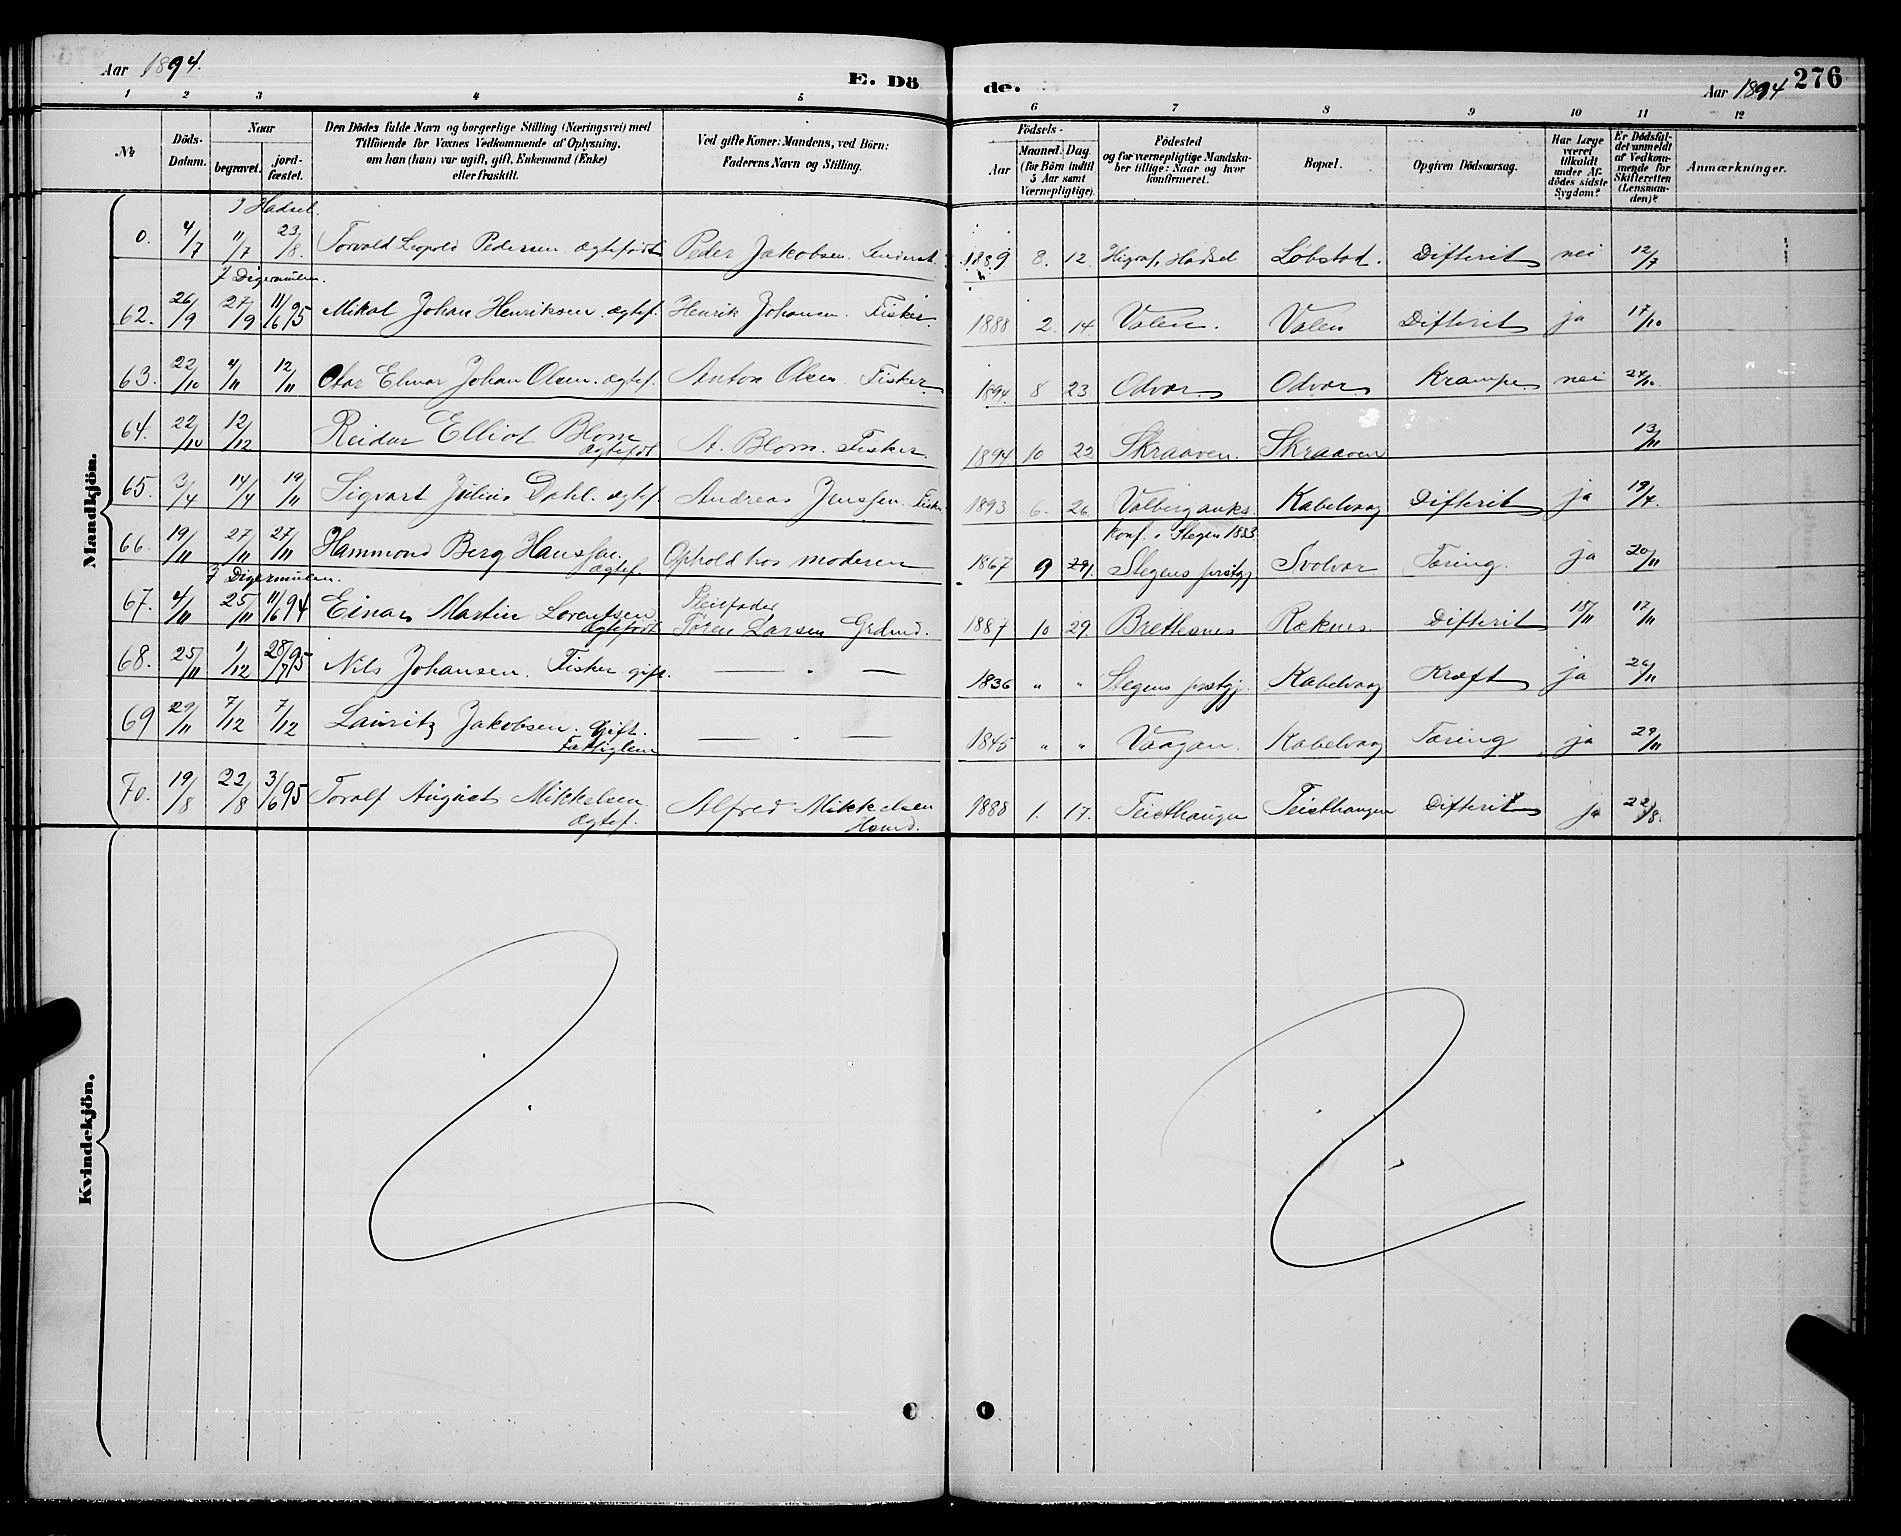 Aar 1894.
E. Dö
de.
Aar 1894
276
1 2 3 4 5 6 7 8 9 10 11 12
№
Döds-Datum.
Naar
begravet.
jord-fæstet.
Den Dödes fulde Navn og borgerlige Stilling (Næringsvei) med
Tilföiende for Voxnes Vedkommende af Oplysning,
om han (hun) var ugift, gift, Enkemand (Enke)
eller fraskilt.
Ved gifte Koner: Mandens, ved Börn:
Faderens Navn og Stilling.
Födsels-
Aar
Maaned. Dag
(for Börn indtil
5 Aar samt
Værnepligtige).
Födested
og for værnepligtige Mandska-
ber tillige: Naar og hvor
konfirmeret.
Bopæl.
Opgiven Dödsaarsag.
Har Læge
været
tilkaldt
under Af-
dödes sidste
Sygdom?
Er Dödsfal-
det anmeldt
af Vedkom-
mende for
Skifteretten
(Lensman-
den)?
Anmærkninger.
Mandkjön.
I Hadsel.
0. 4/7 11/7 23/8. Torvald Leopold Pedersen ægtefødt Peder Jakobsen 1889 8. 12. Hadsel Løbstad. Difterit nei 12/7
I Digermulen.
62. 26/9 27/9 11/6 95 Mikal Johan Henriksen. ægtef. Henrik Johansen. Fisker. 1888 2. 14. Valen. Valen Difterit ja 17/10
63. 22/10 4/11 12/11 Elmar Johan Olsen. ægtef. Anton Olsen Fisker 1894. 8 23. Odvær Odvær Krampe nei 24/10.
64. 22/10 12/12 Reidar Elliot Blom ægtefødt A. Blom. Fisker. 1894 10 22 Skraaven. Skraaven 13/11
65. 3/4 14/4 19/11 Sigvart Julius Dahl. ægtef. Andreas Jenssen. Fisker 1893 6. 26 Kabelvaag Difterit ja 19/4.
konf. i Stegen 1883.
66. 19/11 27/11 27/11 Hammond Berg Hanssen. ægtef. Ophold hos moderen 1867 9 29. Stegens prstgj. Svolvær Tæring. ja 20/11
I Digermulen.
67. 4/11 25/11 11/6 94 Einar Martin Lorentsen. ægtefødt Pleiefader
Larsen Grdmd. 1887 10 29. Brettesnes Ræknes Difterit 15/11 17/11
68. 25/11 1/12 28/7 95 Nils Johansen. Fisker gift. — " — 1836 " " Stegens prstgj. Kabelvaag Kræft ja 26/11
69 29/11 7/12 7/12 Lauritz Jakobsen. gift. Fattiglem — " — 1845 " " Vaagan. Kabelvaag Tæring ja 29/11
70. 19/8 22/8 3/6 95 Toralf August Mikkelsen ægtef. Alfred Mikkelsen Hsmd. 1888 1. 17. Teisthaugen Teisthaugen Difterit ja 22/8.
Kvindekjön.